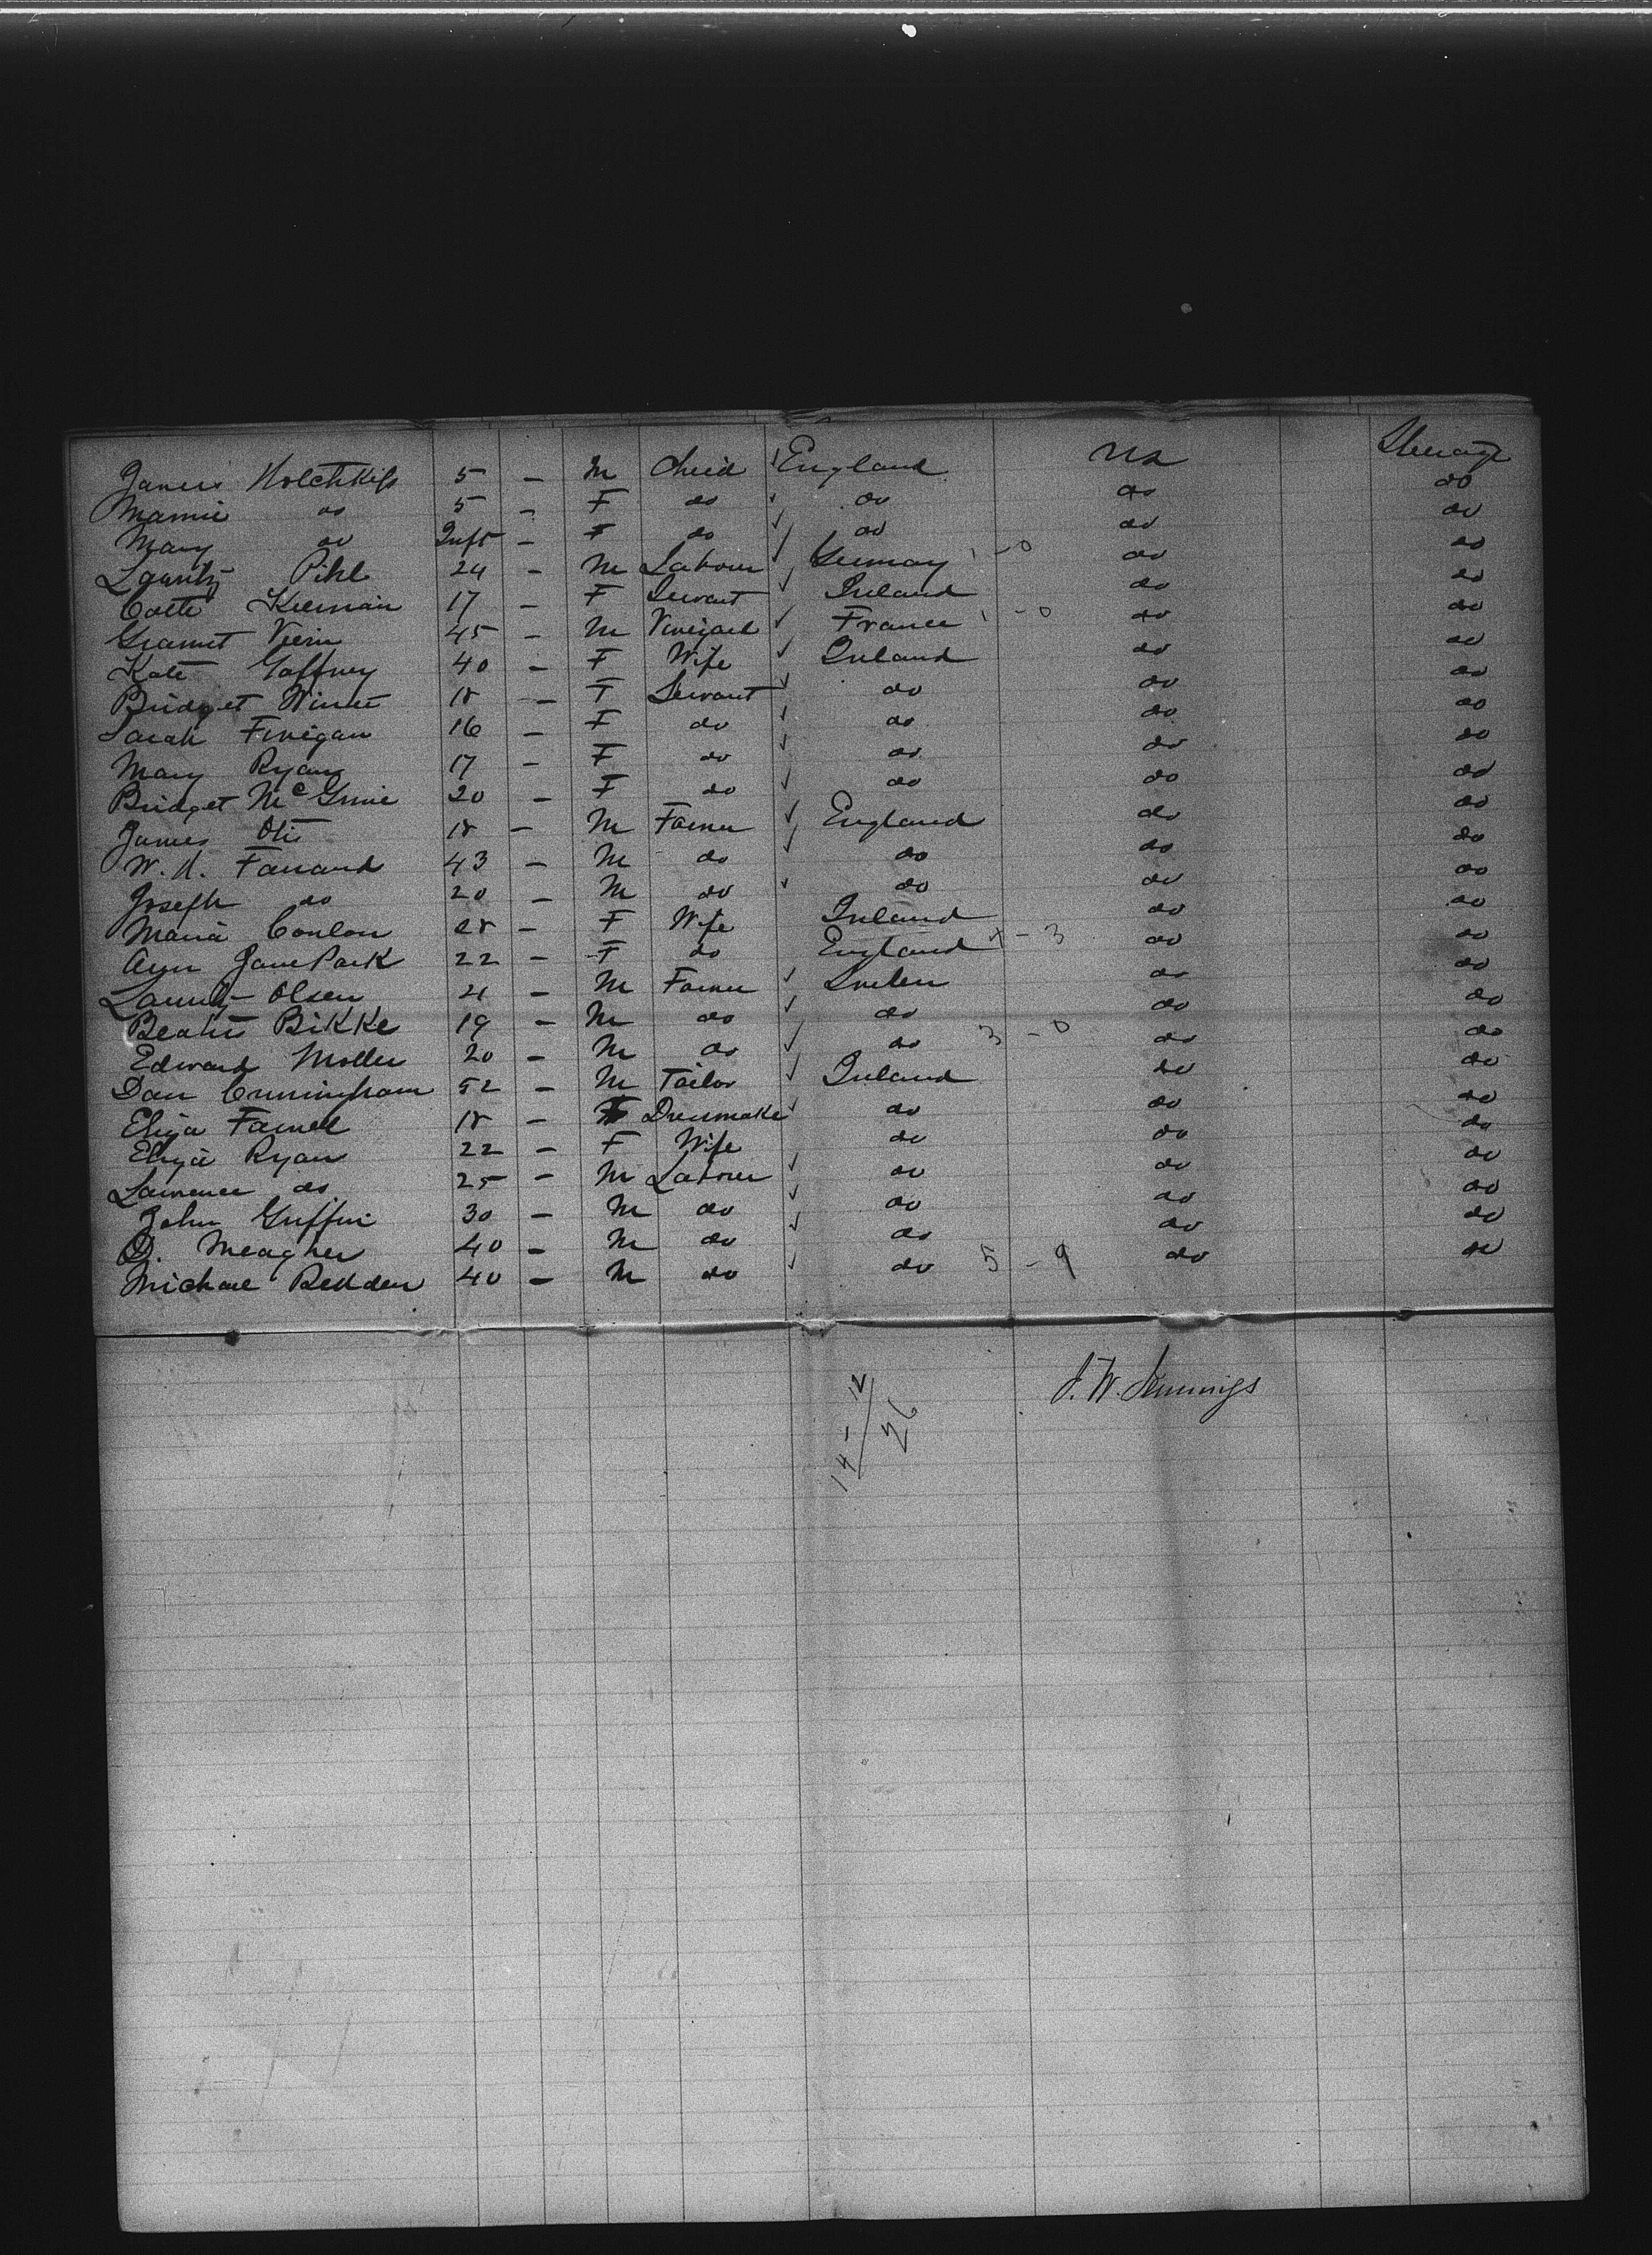 James Hotchkiss 5 - M Child ✓ England US Steerage
Mamie do 5 - F do ✓ do do do
Mary do Inft - F do ✓ do do do
Lauritz Pihl 24 - M Labourer ✓ Germany 1-0 do do
Catte Kiernan 17 - F Servant ✓ Ireland do do
45 - M ✓ France 1-0 do do
Kate Gaffney 40 - F Wife ✓ Ireland do do
Bridget 18 - F Servant ✓ do do do
Sarah Finigan 16 - F do ✓ do do do
Mary Ryan 17 - F do ✓ do do do
Bridget 20 - F do ✓ do do do
James 18 - M Farmer ✓ England do do
W. H. Farrand 43 - M do ✓ do do do
Joseph do 20 - M do ✓ do do do
Maria Conlon 28 - F Wife Ireland do do
Ann Jane Park 22 - F do England 4-3 do do
Lauritz Olsen 21 - M Farmer ✓ Sweden do do
BiKKe 19 - M do ✓ do do do
Edward Moller 20 - M do ✓ do 3-0 do do
Dan Cunningham 52 - M Tailor ✓ Ireland do do
Eliza Farrell 18 - F Dressmaker ✓ do do do
Eliza Ryan 22 - F Wife do do do
Lawrence do 25 - M Labourer ✓ do do do
John Griffin 30 - M do ✓ do do do
D. Meagher 40 - M do ✓ do do do
Michael Redden 40 - M do ✓ do 5-9 do do
J. W. Jennings
14-12
26